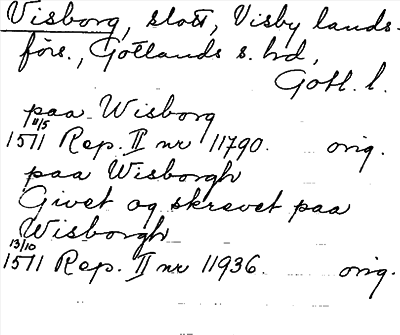 Visborg, slott, Visby lands-
förs., Gotlands s. hd,
Gotl. l.
paa Wisborg
11/5
1511 Rep. II nr 11790. orig.
paa Wisborgh
Givet og skrevet paa
Wisborgh
13/10
1511 Rep. II nr 11936. orig.